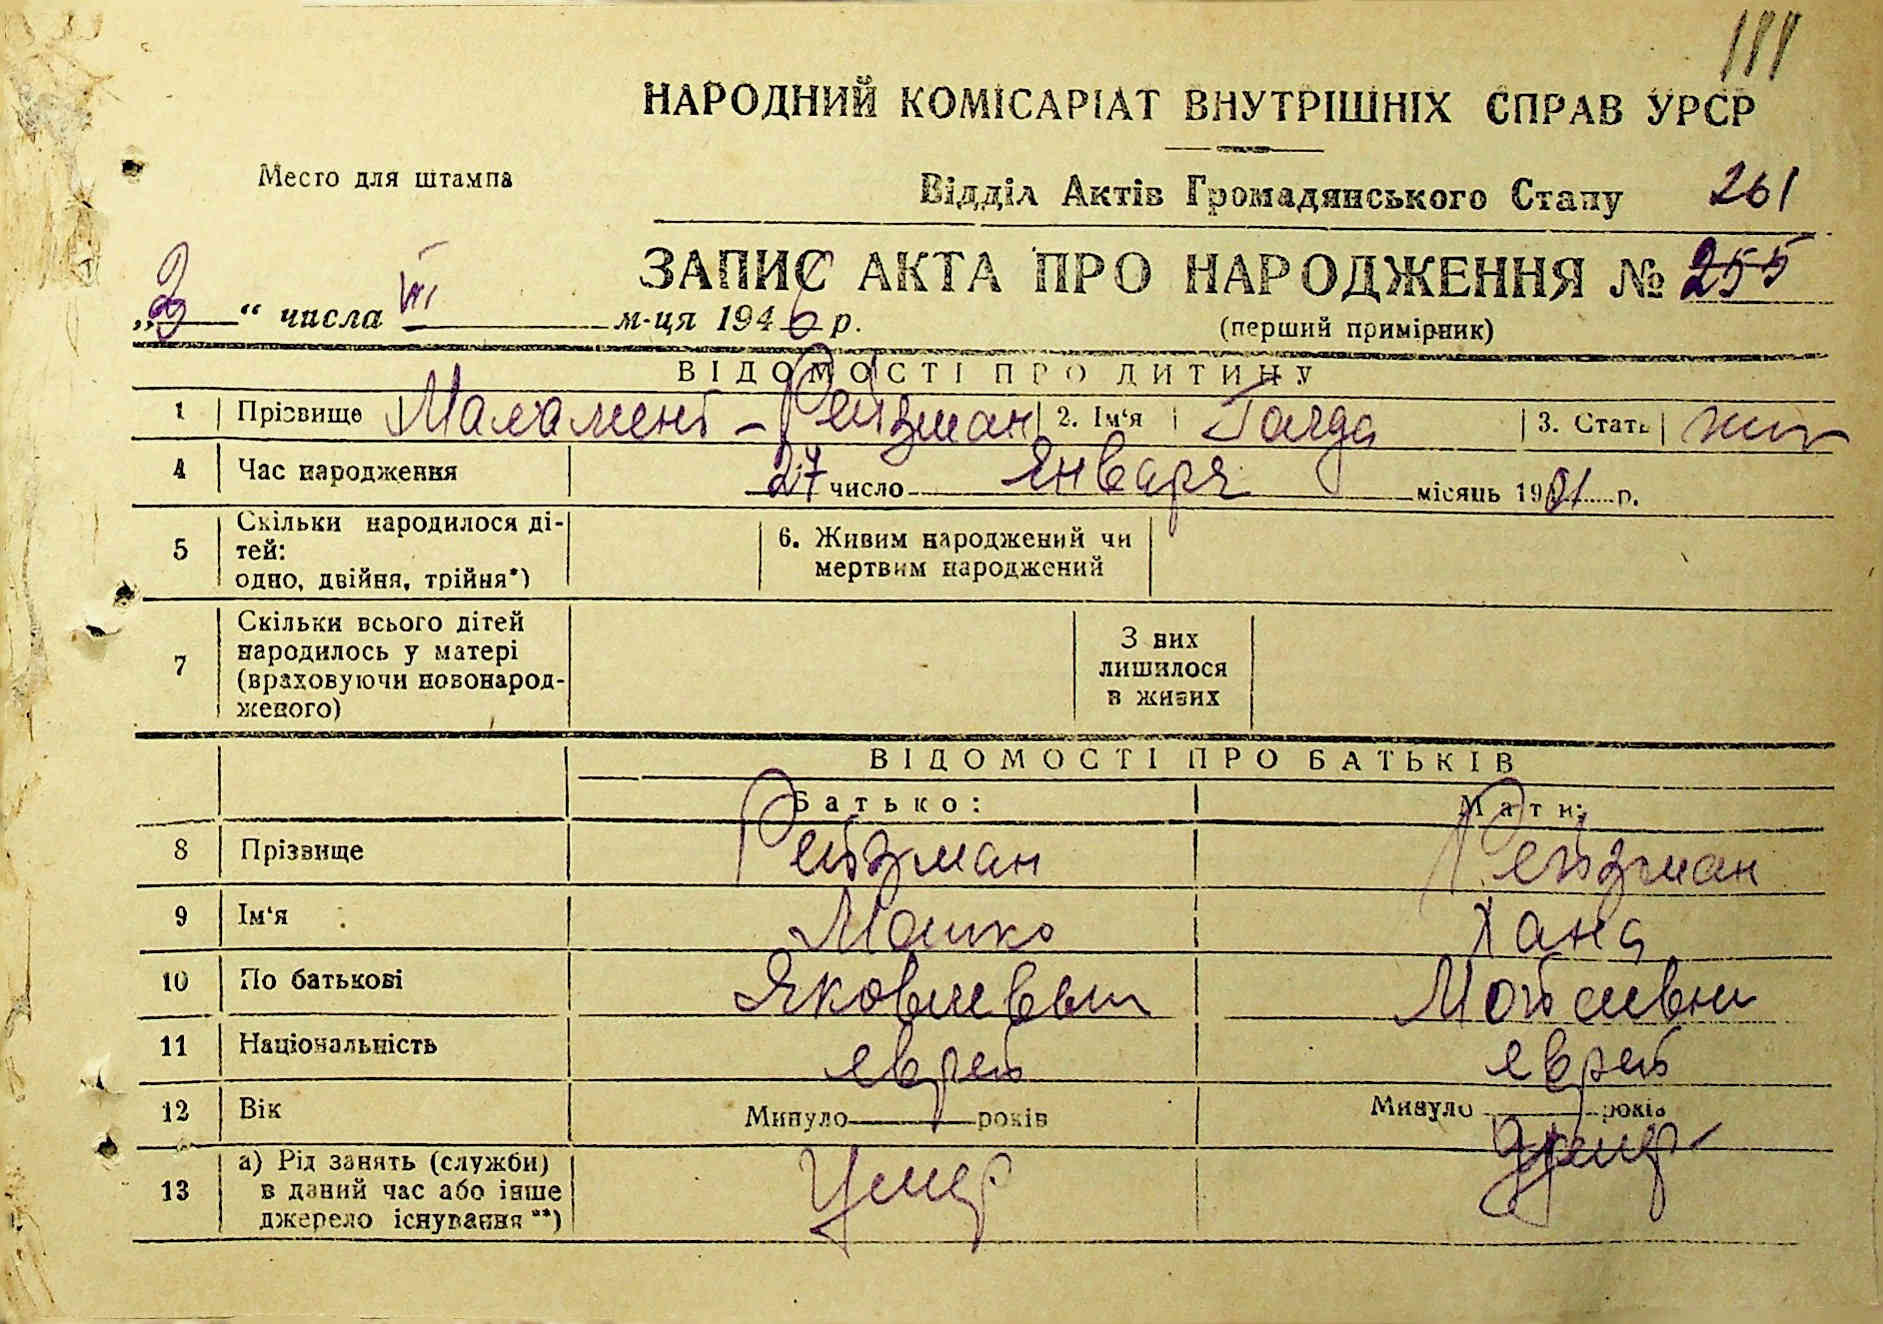 111
НАРОДНИЙ КОМІСАРІАТ ВНУТРІШНІХ СПРАВ УРСР
Место для штампа
Відділ Актів Громадянського Стану 261
ЗАПИС АКТА ПРО НАРОДЖЕННЯ № 255
„3“ числа VII м-ця 1946 р.
(перший примірник)
ВІДОМОСТІ ПРО ДИТИНУ
1 Прізвище Маламент-Рейзман 2. Ім‘я Голда 3. Стать жін
4 Час народження 27 число Января місяць 1901 р.
5 Скільки народилося ді-
тей:
одно, двійня, трійня*)
6. Живим народжений чи
мертвим народжений
7 Скільки всього дітей
народилось у матері
(враховуючи новонарод-
женого)
З них
лишилося
в живих
ВІДОМОСТІ ПРО БАТЬКІВ
Батько: Мати:
8 Прізвище Рейзман Рейзман
9 Ім‘я Мошко Хана
10 По батькові Яковлевич Мойсеевна
11 Національність еврей еврей
12 Вік Минуло років Минуло років
13 а) Рід занять (служби)
в даний час або інше
джерело існування **)
Умер Умер